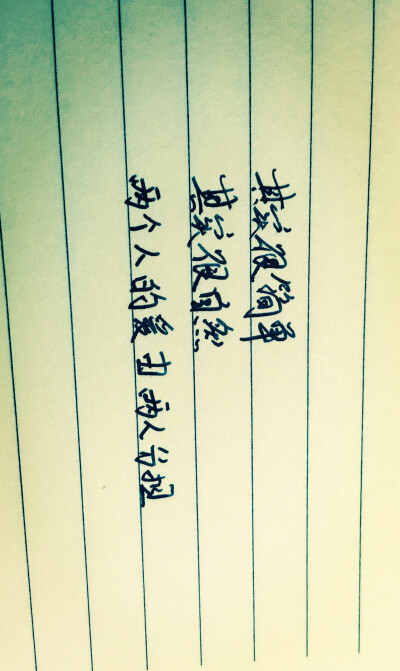 其实很简单
其实很自然
两个人的爱由两人分担